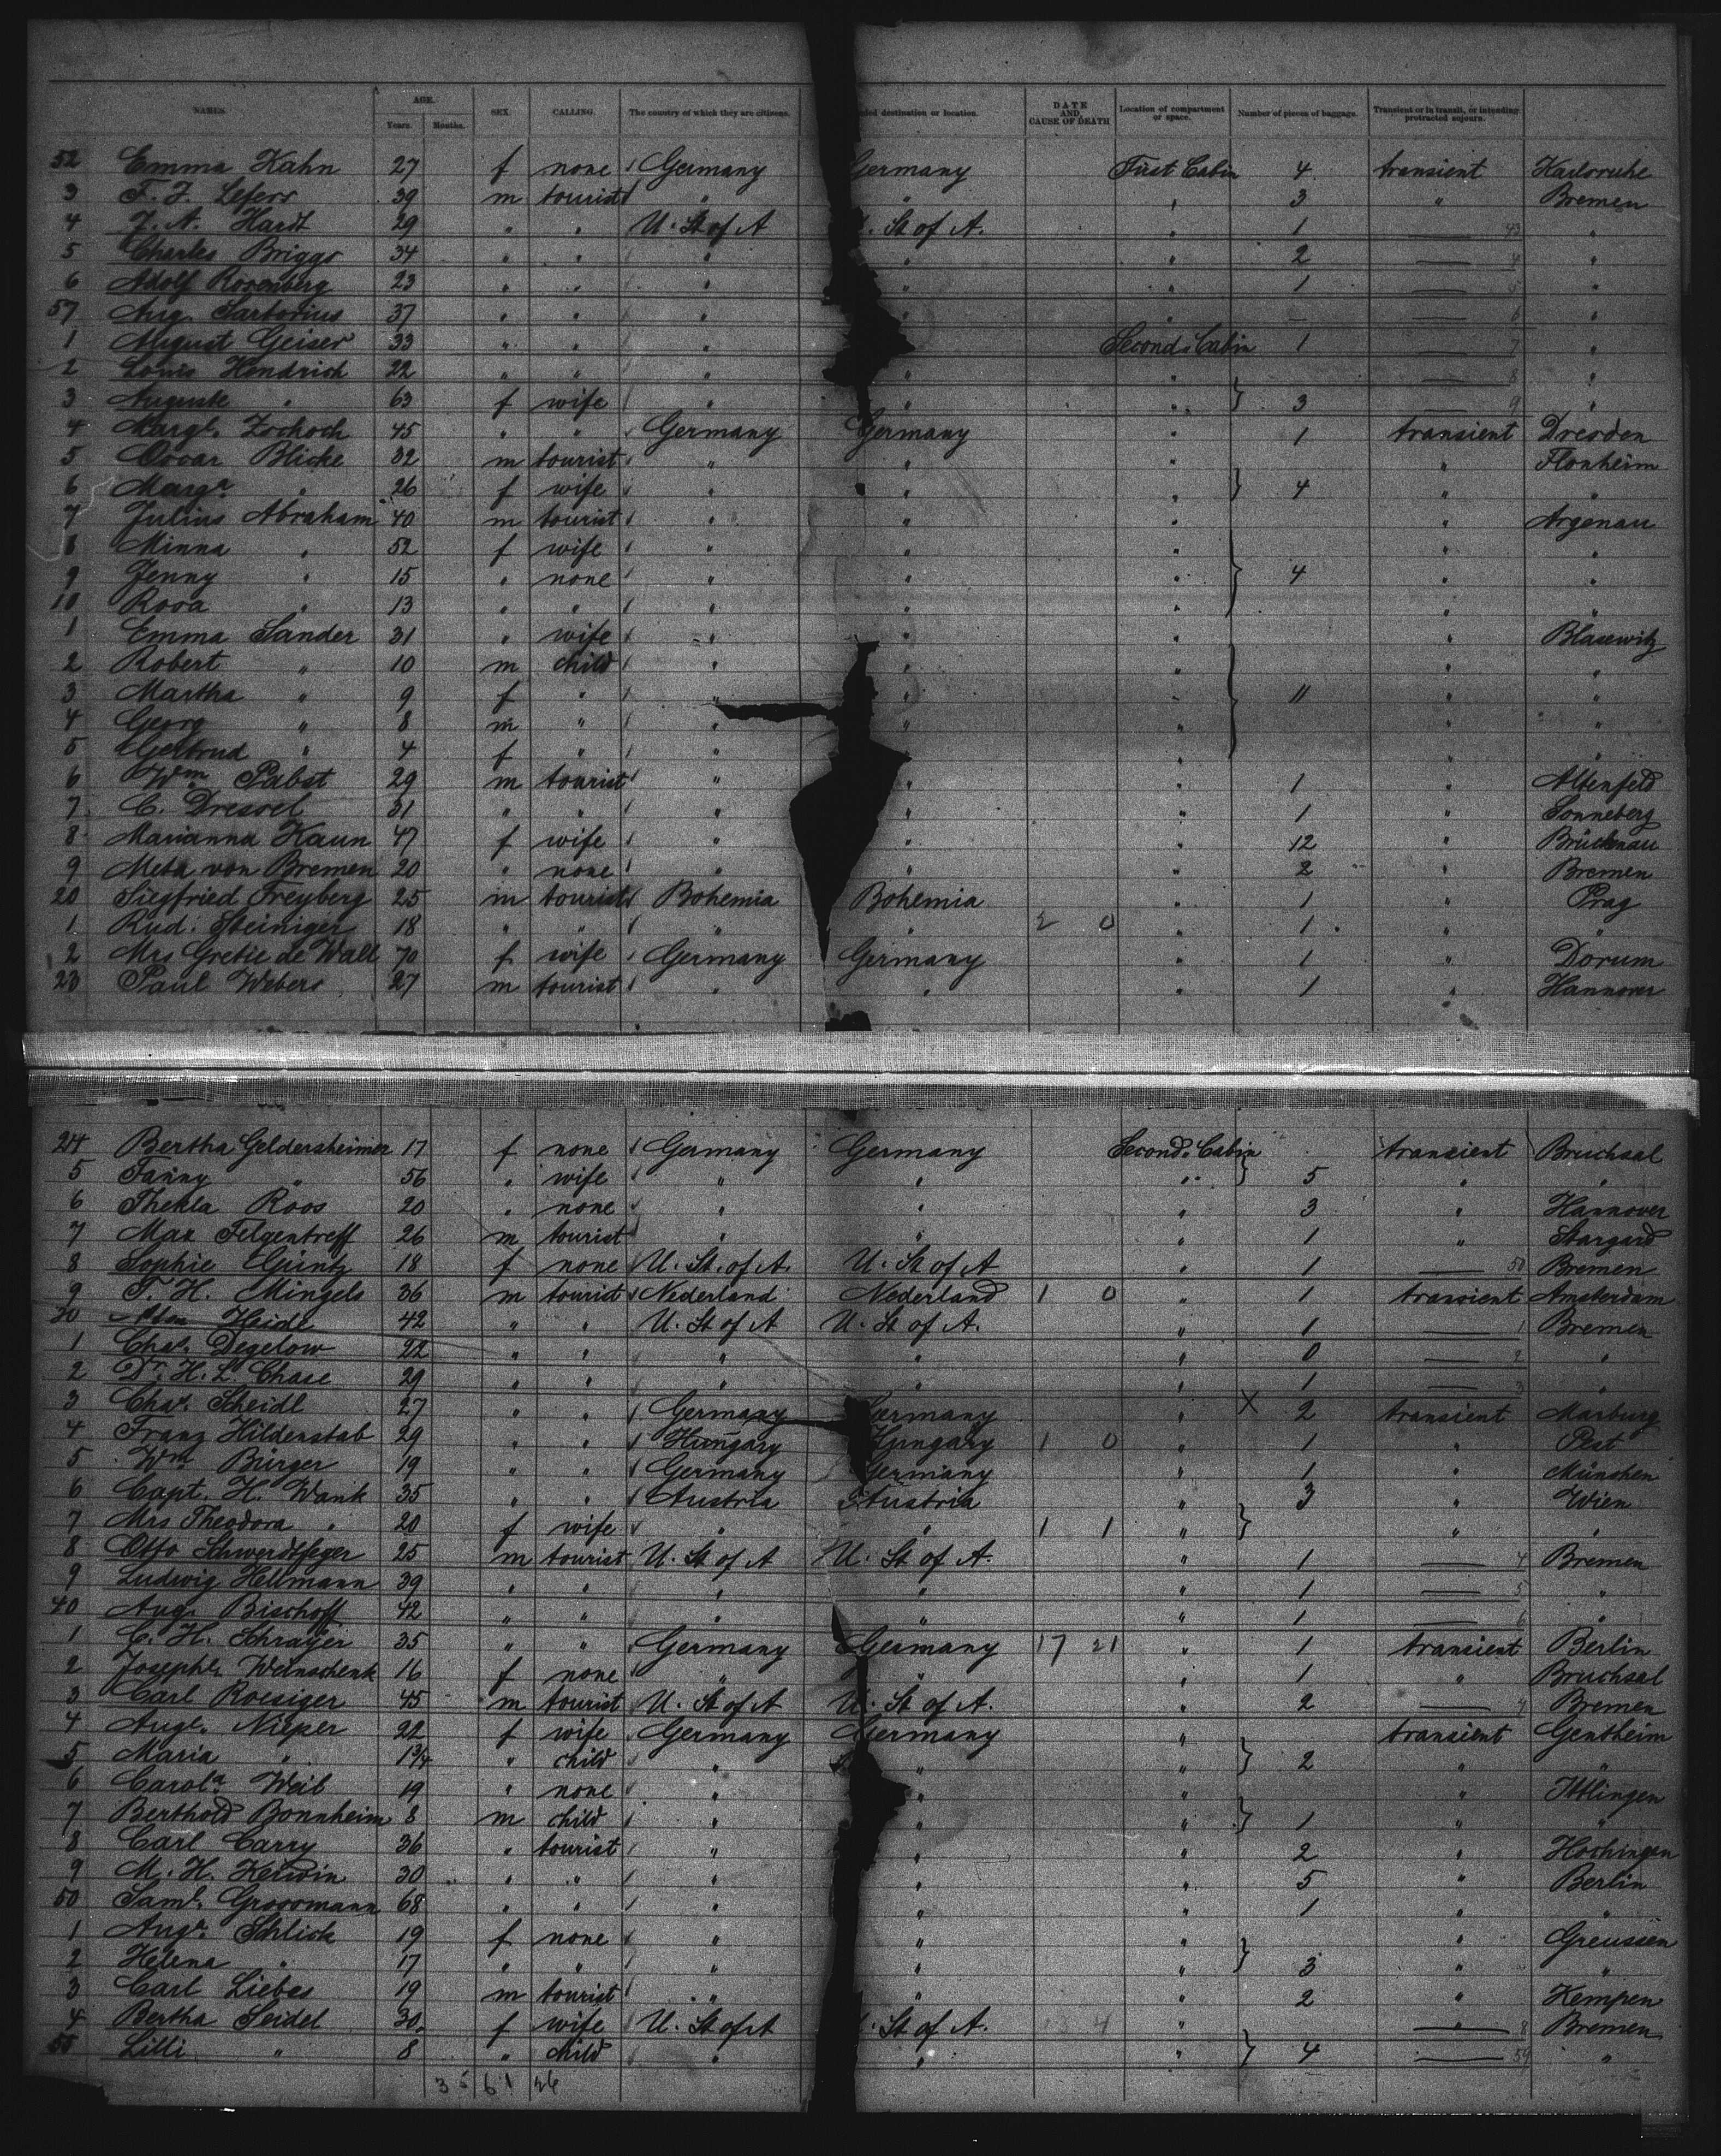 NAMES. AGE. Years. Months. SEX. CALLING. The country of which they are citizens. destination or location. DATE AND CAUSE OF DEATH Location of compartment or space. Number of pieces of baggage. Transient or in transit, or intending protracted sojourn.
52 Emma Kahn 27 f none Germany Germany First Cabin 4 transient Karlsruhe
3 F. J. Lefers 39 m tourist " " " 3 " Bremen
4 J. A. Hardt 29 " " U. St of A St of A. " 1 — 43 "
5 Charles Briggs 34 " " " " " 2 — 4 "
6 Adolf Rosenberg 23 " " " " " 1 — 5 "
57 Aug. Sartorius 37 " " " — — 6 "
1 August Geiser 33 " " " Second Cabin 1 — 7 "
2 Louis Hendrich 22 " " " " " — 8 "
3 Auguste " 63 f wife " " " 3 — 9 "
4 Marg. Zschoch 45 " " Germany Germany " 1 transient Dresden
5 Oscar Blicke 32 m tourist " " " " Flonheim
6 Marga " 26 f wife " " " 4 " "
7 Julius Abraham 40 m tourist " " " " Argenau
8 Minna " 52 f wife " " " " "
9 Jenny " 15 " none " " " 4 " "
10 Rosa " 13 " " " " " " "
1 Emma Sander 31 " wife " " " " Blasewitz
2 Robert " 10 m child " " " " "
3 Martha " 9 f " " " " 11 " "
4 Georg " 8 m " " " " " "
5 Gertrud " 4 f " " " " " "
6 Wm Pabst 29 m tourist " " " 1 " Altenfeld
7 C. Dressel 31 " " " " " 1 " Sonneberg
8 Marianna Kaun 47 f wife " " " 12 " Brückenau
9 Meta von Bremen 20 " none " " " 2 " Bremen
20 Siegfried Freyberg 25 m tourist Bohemia Bohemia " 1 " Prag
1 Rud. Steiniger 18 " " " " 2 0 " 1 " "
2 Mrs Gretie de Wall 70 f wife Germany Germany " 1 " Dorum
23 Paul Webers 27 m tourist " " " 1 " Hannover
24 Bertha Geldersheimer 17 f none Germany Germany Second Cabin transient Bruchsal
5 Fanny " 56 " wife " " " 5 " "
6 Thekla Roos 20 " none " " " 3 " Hannover
7 Max Felgentreff 26 m tourist " " " 1 " Stargard
8 Sophie Guntz 18 f none U. St. of A. U. St of A " 1 — 50 Bremen
9 F. H. Mingels 36 m tourist Nederland Nederland 1 0 " 1 transient Amsterdam
30 Heidl 42 " " U. St of A U. St of A. " 1 — 1 Bremen
1 Chas. Degelow 22 " " " " " 0 — 2 "
2 Dr. H. L. Chase 29 " " " " " 1 — 3 "
3 Chas. Scheidl 27 " " Germany Germany " X 2 transient Marburg
4 Franz Hildenstab 29 " " Hungary Hungary 1 0 " 1 " Pest
5 Wm Bürger 19 " " Germany Germany " 1 " München
6 Capt. H. Wank 35 " " Austria Austria " 3 " Wien
7 Mrs Theodora " 20 f wife " " 1 1 " " "
8 Otto Schwerdtfeger 25 m tourist U. St of A U. St of A. " 1 — 4 Bremen
9 Ludwig Hellmann 39 " " " " " 1 — 5 "
40 Aug. Bischoff 42 " " " " " 1 — 6 "
1 C. H. Schrayer 35 " " Germany Germany 17 21 " 1 transient Berlin
2 Josephe. Weinschenk 16 f none " " " 1 " Bruchsal
3 Carl Roesiger 45 m tourist U. St of A U. St of A. " 2 — 7 Bremen
4 Auge. Nieper 22 f wife Germany Germany " transient Gentheim
5 Maria " 1 3/4 " child " " " 2 " "
6 Carola Weil 19 " none " " " " Ittlingen
7 Berthold Bonnheim 8 m child " " " 1 " "
8 Carl Carry 36 " tourist " " " 2 " Hechingen
9 M. H. Kerwin 30 " " " " " 5 " Berlin
50 Saml. Grossmann 68 " " " " " 1 " "
1 Auga. Schlick 19 f none " " " " Greussen
2 Helena " 17 " " " " " 3 " "
3 Carl Liebes 19 m tourist " " " 2 " Kempen
4 Bertha Seidel 30 f wife U. St of A St of A. 4 " " — 8 Bremen
55 Lilli " 8 " child " " " 4 — 59 "